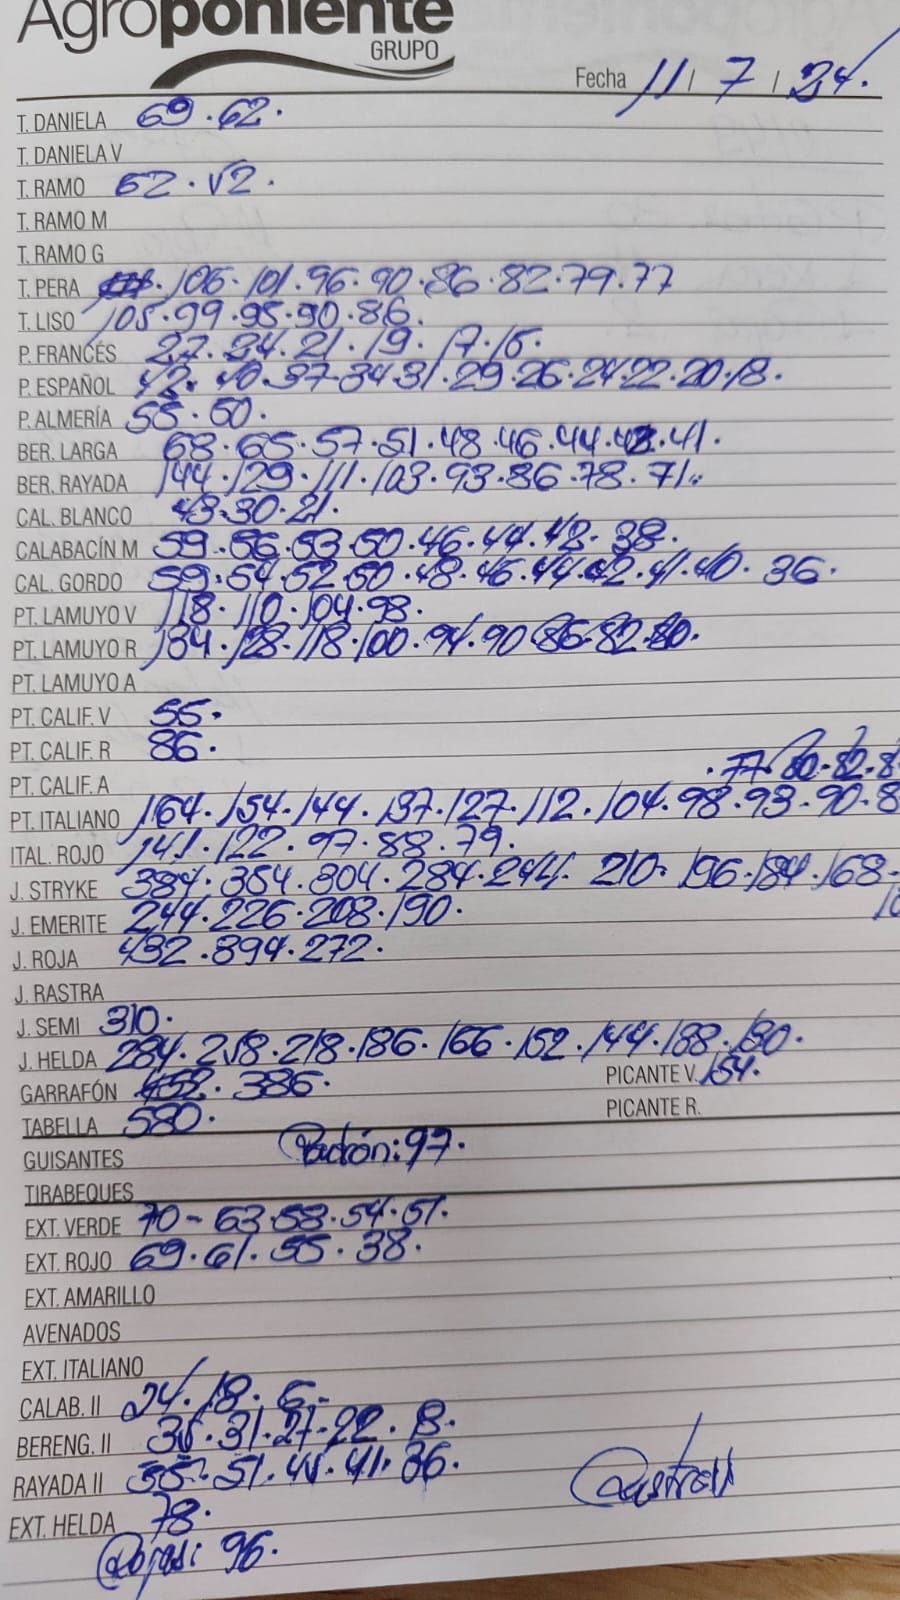 Agroponiente
GRUPO
Fecha 11 / 7 / 24.
T. DANIELA 69.62.
T. DANIELA V
T. RAMO 62.52.
T. RAMO M
T. RAMO G
T. PERA 106.101.96.90.86.82.79.77
T. LISO 105.99.95.90.86.
P. FRANCÉS 27.24.21.19.17.15.
P. ESPAÑOL 42.40.37.34.31.29.26.24.22.20.18.
P. ALMERÍA 55.50.
BER. LARGA 68.65.57.51.48.46.44.43.41.
BER. RAYADA 144.129.111.103.93.86.78.71.
CAL. BLANCO 43.30.21.
CALABACÍN M 59.56.53.50.46.44.42.38.
CAL. GORDO 59.54.52.50.48.46.44.42.41.40.36.
PT. LAMUYO V 118.110.104.98.
PT. LAMUYO R 134.128.118.100.94.90.86.82.80.
PT. LAMUYO A
PT. CALIF. V 55.
PT. CALIF. R 86.
PT. CALIF. A
.77.80.82.8
PT. ITALIANO 164.154.144.137.127.112.104.98.93.90.8
ITAL. ROJO 141.122.97.88.79.
J. STRYKE 384.354.304.284.244.210.196.184.168.
J. EMERITE 244.226.208.190.
J. ROJA 432.394.272.
J. RASTRA
J. SEMI 310.
J. HELDA 284.258.218.186.166.152.144.138.130.
GARRAFÓN 452.386. PICANTE V. 154.
TABELLA 580. PICANTE R.
GUISANTES Padrón: 97.
TIRABEQUES
EXT. VERDE 70-63.58.54.51.
EXT. ROJO 69.61.55.38.
EXT. AMARILLO
AVENADOS
EXT. ITALIANO
CALAB. II 24.18.6.
BERENG. II 35.31.27.22.8.
RAYADA II 55.51.45.41.36.
EXT. HELDA 78.
Rojas: 96.